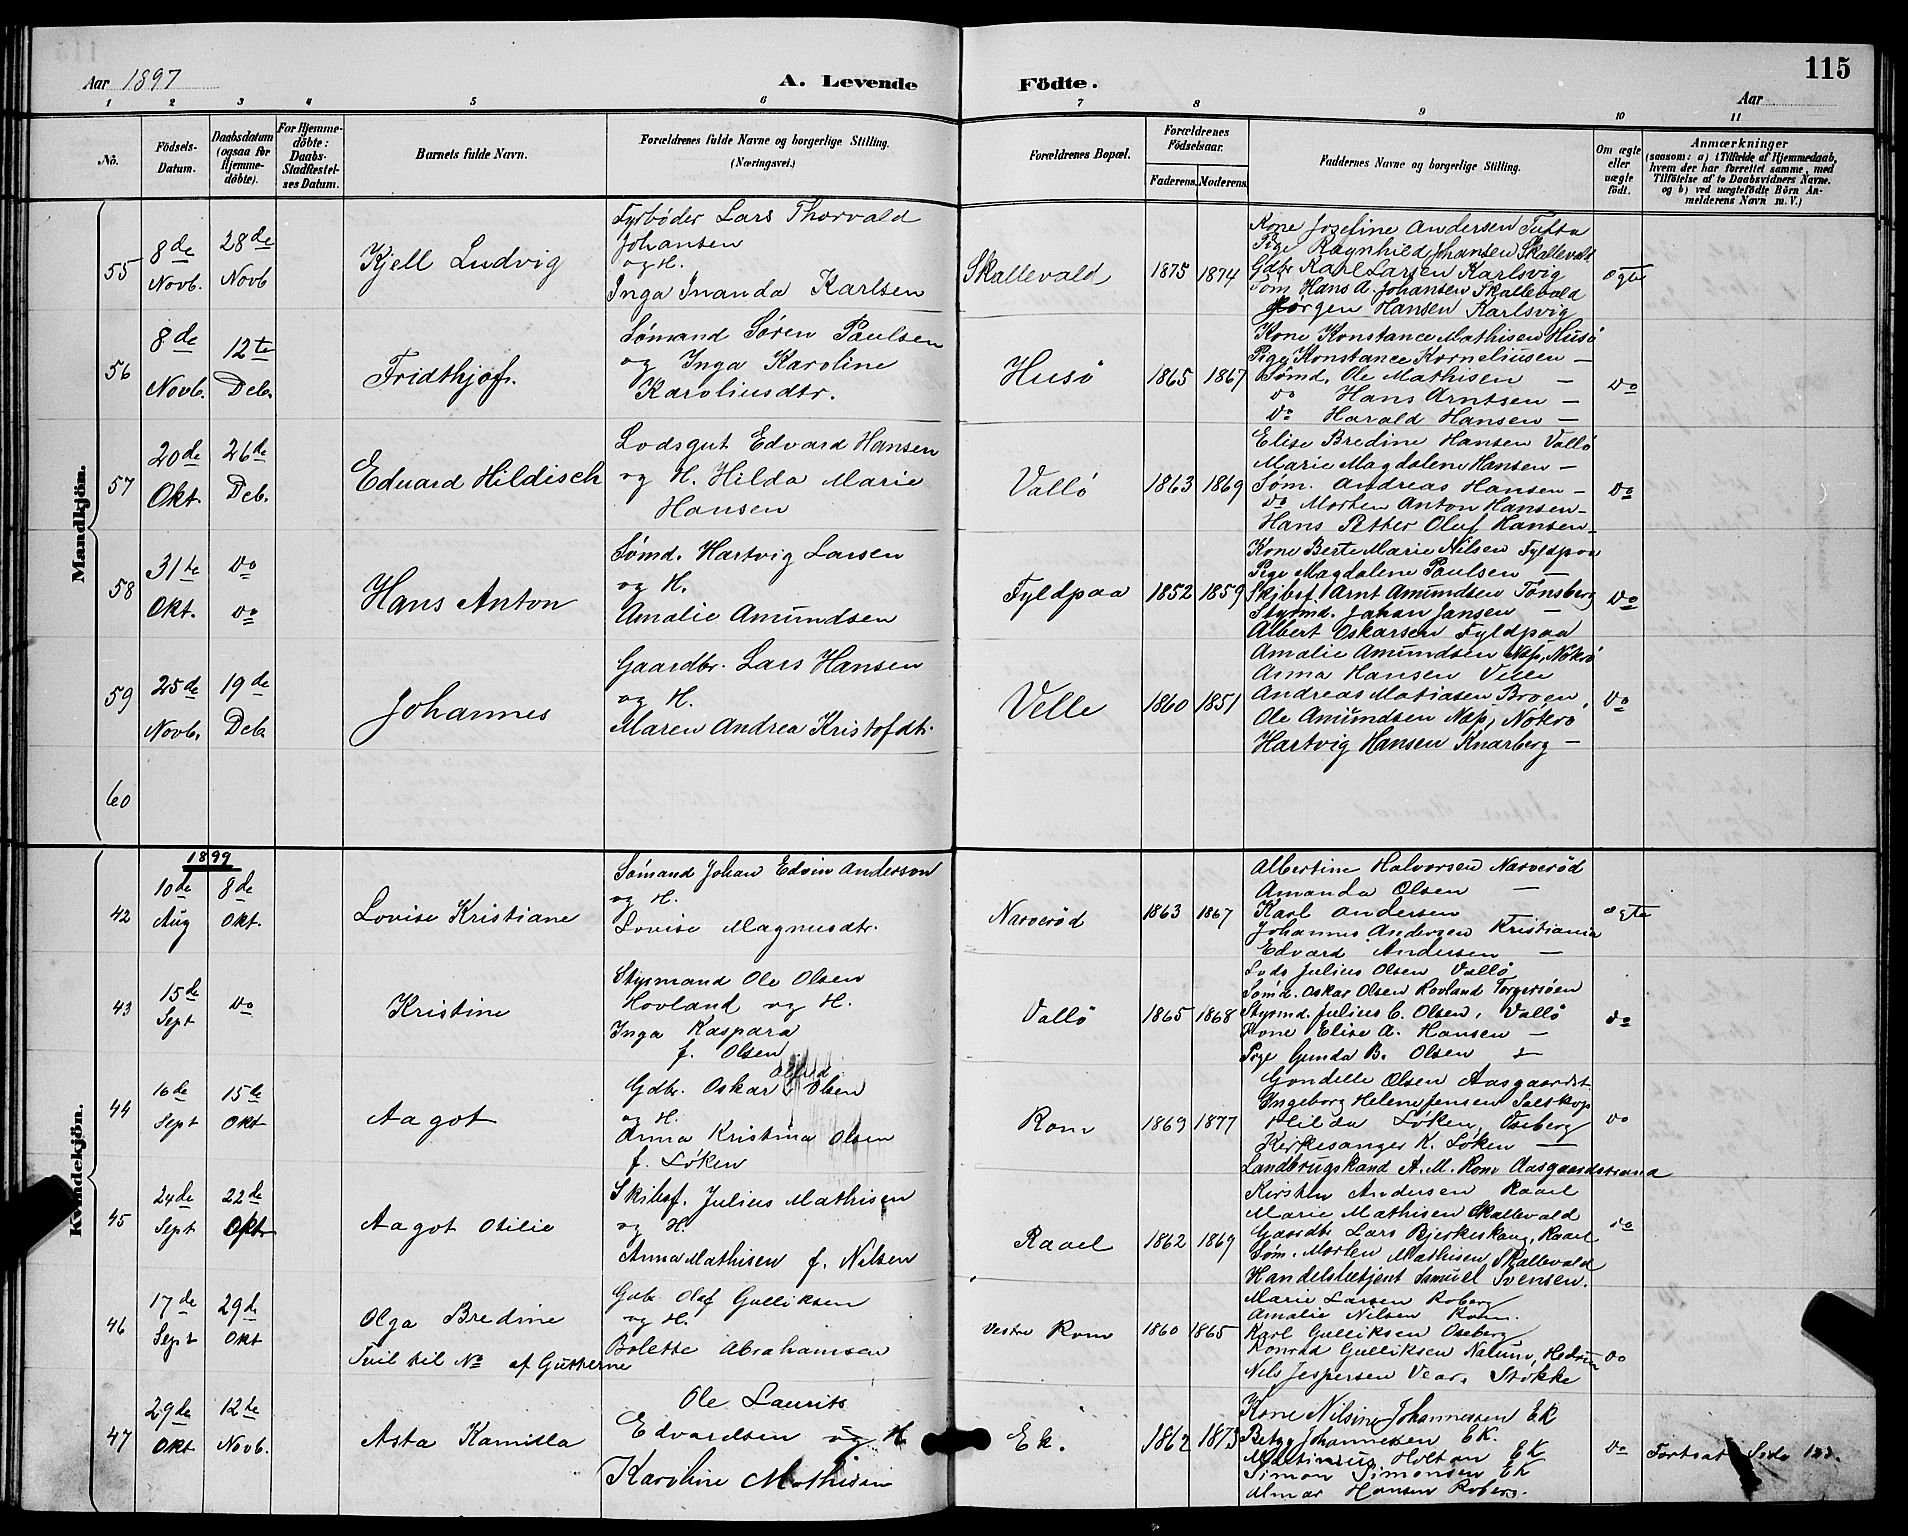 115
Aar 1897
A. Levende Födte.
Aar
1 2 3 4 5 6 7 8 9 10 11
No.
Födsels-Datum.
Daabsdatum (ogsaa for Hjemme-döbte).
For Hjemme-döbte: Daabs-Stadfæstel-ses Datum.
Barnets fulde Navn.
Forældrenes fulde Navne og borgerlige Stilling. (Næringsvei.)
Forældrenes Bopæl.
Forældrenes Födselsaar.
Faderens. Moderens.
Faddernes Navne og borgerlige Stilling.
Om ægte eller uægte födt.
Anmærkninger
(saasom: a) i Tilfælde af Hjemmedaab, hvem der har forrettet samme, med Tilföielse af to Daabsvidners Navne, og b) ved uægtefödte Börn An-melderens Navn m. V.)
Mandkjön.
55
8de Novb.
28de Novb
Kjell Ludvig
Fyrbøder Lars Thorvald
Johansen
og H.
Inga Inanda Karlsen
Skallevald
1875 1874
Kone Josefine Andersen Tufta
Pige Ragnhild Johansen Skallevald
Gdbr Karl Larsen Karlsvig
Søm Hans A. Johansen Skallevald
Jørgen Hansen Karlsvig
ægte
56
8de Novb.
12te Deb.
Fridthjof.
Sømand Søren Paulsen
og Inga Karoline
Karoliusdtr.
Husö
1865 1867
Kone Konstance Mathisen Husö
Pige Konstance Korneliusen —
Sømd. Ole Mathisen —
do Hans Arntsen —
do Harald Hansen —
do
57
20de Okt.
26de Deb.
Eduard Hildisch
Lodsgut Edvard Hansen
og H. Hilda Marie
Hansen
Vallö
1863 1869
Elise Bredine Hansen Vallö
Marie Magdalene Hansen —
Søm. Andreas Hansen —
do Morten Anton Hansen —
Hans Petter Oluf Hansen —
do
58
31te Okt.
do do
Hans Anton
Sømd. Hartvig Larsen
og H.
Amalie Amundsen
Fyldpaa
1852 1859
Kone Berte Marie Nilsen Fyldpaa
Pige Magdalene Paulsen —
Skibsf. Arnt Amundsen Tønsberg
Styrmd. Johan Jansen —
Albert Oskarsen Fyldpaa
do
59
25de Novb.
19de Deb.
Johannes
Gaardbr. Lars Hansen
og H.
Maren Andrea Kristofdtr.
Velle
1860 1851
Amalie Amundsen Næp, Nøkrö
Anna Hansen Velle
Andreas Matiasen Broen,
Ole Amundsen Næp, Nøkrö
Hartvig Hansen Knarberg —
do
60
Kvindekjön.
1899
42
10de Aug
8de Okt.
Lovise Kristiane
Sømand Johan Edvin Anderson
og H.
Lovise Magnusdtr.
Narverød
1863 1867
Albertine Halvorsen Narverød
Amanda Olsen —
Karl Andersen
Johannes Andersen Kristiania
Edvard Andersen —
ægte
43
15de Sept
do
Kristine
Styrmand Ole Olsen
Hovland og H.
Inga Kaspara
f. Olsen
Vallö
1865 1868
Lods Julius Olsen Vallö
Sømd. Oskar Olsen Hovland Torgersöen
Styrmd. Julius C. Olsen, Vallö
Kone Elise A. Hansen —
Pige Gunda B. Olsen —
do
44
16de Sept
15de Okt
Aagot
Gdbr. Oskar Olsen
og H.
Anna Kristina Olsen
f. Løken
Rom
1869 1877
Gondelle Olsen Aasgaardst
Ingeborg Helene Jensen Solskop
Hilda Løken, Oseberg
Kirkesanger K. Løken —
Landbrugskand A. M. Rom Aasgaardstrand
do
45
24de Sept
22de Okt
Aagot Otilie
Skibsf. Julius Mathisen
og H.
Anna Mathisen f. Nilsen
Raael
1862 1869
Kirsten Andersen Raael
Marie Mathisen Skallevald
Gaardbr Lars Bjerkeskaug, Raael
Søm. Morten Mathisen Skallevald
Handelsbetjent Samuel Svensen.
do
46
17de Sept
29de Okt
Olga Bredine
Tvil til No af Gutterne
Gbr. Olaf Gulliksen
og H.
Bolette Abrahamsen
Vestre Rom
1860 1865
Marie Larsen Roberg
Amalie Nilsen Rom.
Karl Gulliksen Oseberg
Konrad Gulliksen Natum, Hedrum
Nils Jespersen Vear, Stokke
do
47
29de Okt
12te Novb.
Asta Kamilla
Ole Laurits
Edvardsen og H.
Karoline Mathisen
Ek.
1862 1873
Kone Nilsine Johannessen Ek
Betzy Johannesen Ek.
Martinius Holtan Ek
Simon Simonsen Ek
Almar Hansen Roberg.
do
Fortsat Side